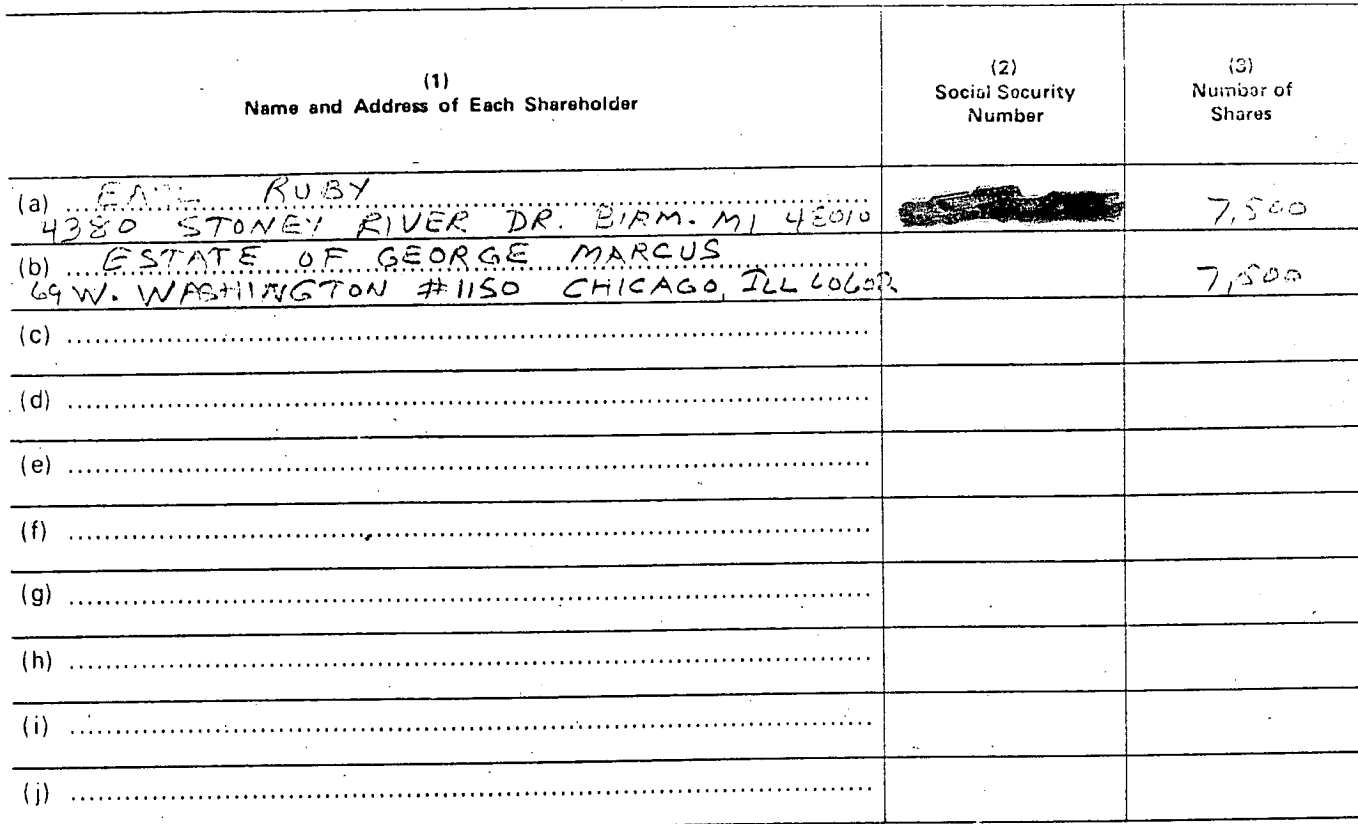 (1)
Name and Address of Each Shareholder
(2)
Social Security
Number
(3)
Number of
Shares
(a) RUBY
4380 STONEY RIVER DR. BIRM. MI 48010
7,500
(b) ESTATE OF GEORGE MARCUS
69 W. WASHINGTON #1150 CHICAGO, ILL 60602
7,500
(c)
(d)
(e)
(f)
(g)
(h)
(i)
(j)